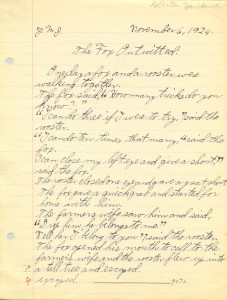 J.M.J. November 6, 1924.
The Fox Outwitted.
One day a fox and a rooster were
walking together.
The fox said, "How many tricks do you
know?"
"I can do three if I was to try," said the
rooster.
"I can do ten times that many," said the
fox.
I can close my left eye and give a shout,"
said the fox.
The rooster closed one eye and gave a great shout.
The fox gave a quick grab and started for
home with him.
The farmer's wife saw him and said,
he belongs to me."
I belong to you," said the rooster.
The fox opened his mouth to call to the
farmer's wife and the rooster flew up into
a tall tree and escaped.
escaped.